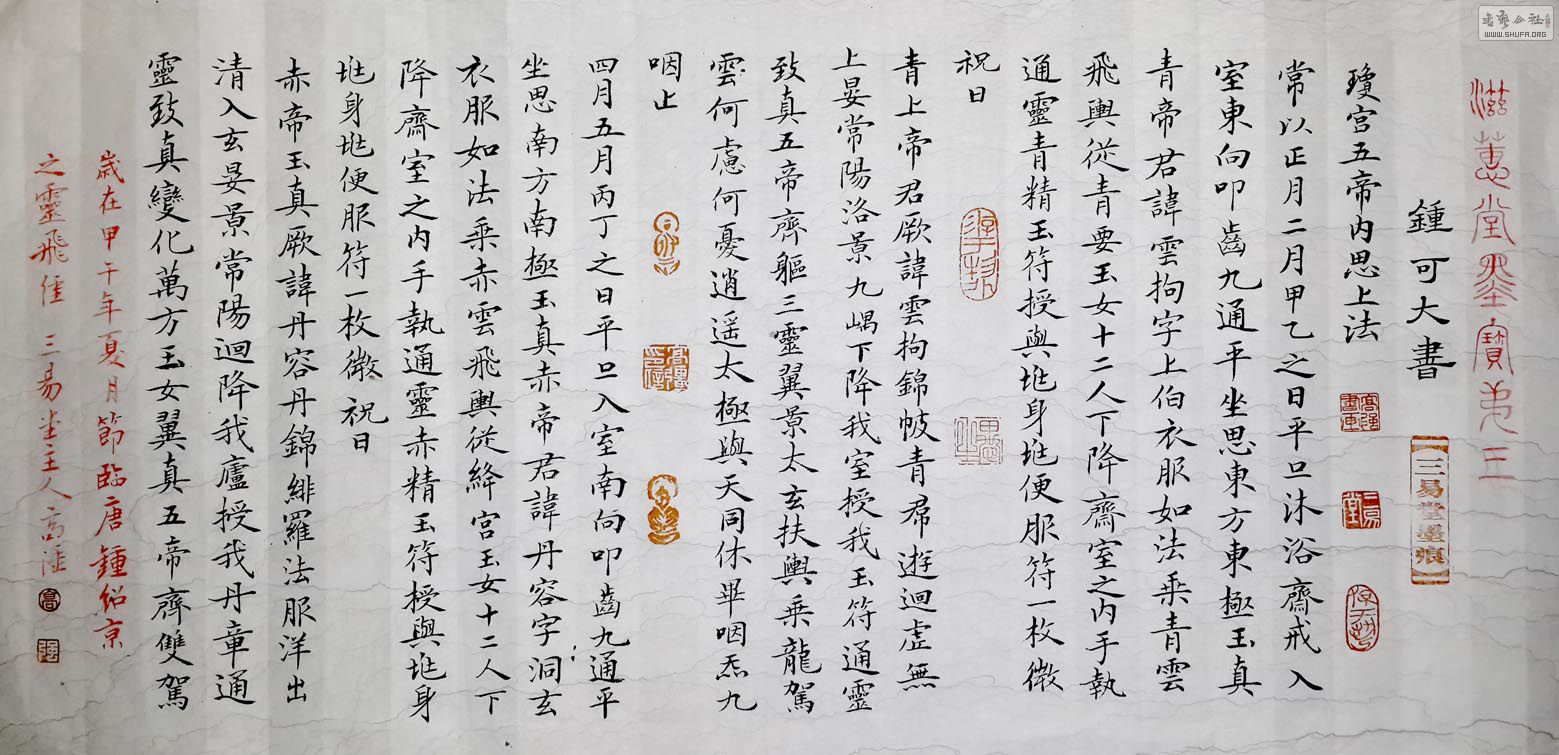 滋蕙堂墨寶弟三
鍾可大書
瓊宮五帝內思上法
常以正月二月甲乙之日平旦沐浴齋戒入
室東向叩齒九通平坐思東方東極玉真
青帝君諱雲拘字上伯衣服如法乘青雲
飛輿從青要玉女十二人下降齋室之內手執
通靈青精玉符授與兆身兆便服符一枚微
祝曰
青上帝君厥諱雲拘錦帔青帬遊迴虛無
上晏常陽洛景九嵎下降我室授我玉符通靈
致真五帝齊軀三靈翼景太玄扶輿乘龍駕
雲何慮何憂逍遙太極與天同休畢咽炁九
咽止
四月五月丙丁之日平旦入室南向叩齒九通平
坐思南方南極玉真赤帝君諱丹容字洞玄
衣服如法乘赤雲飛輿從絳宮玉女十二人下
降齋室之內手執通靈赤精玉符授與兆身
兆身兆便服符一枚微祝曰
赤帝玉真厥諱丹容丹錦緋羅法服洋出
清入玄晏景常陽迴降我廬授我丹章通
靈致真變化萬方玉女翼真五帝齊雙駕
歲在甲午年夏月節臨唐鍾紹京
之靈飛經 三易堂主人高強
三易堂墨痕
書藝公社
WWW.SHUFA.ORG